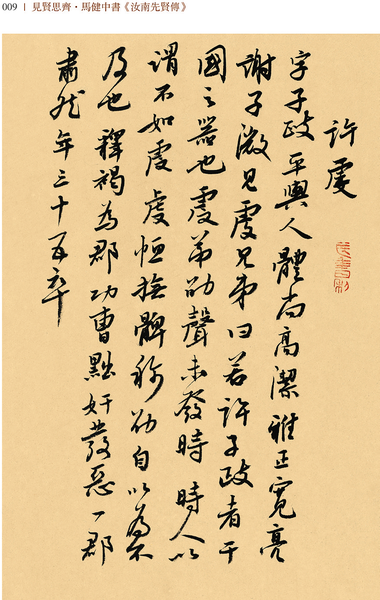 009 | 見賢思齊・馬健中書《汝南先賢傳》
許虔
字子政平輿人體尚高潔雅正寬亮
謝子微見虔兄弟曰若許子政者干
國之器也虔弟劭聲未發時時人以
謂不如虔虔恒撫髀称劭自以為不
及也釋褐為郡功曹黜奸發惡一郡
肅然年三十五卒